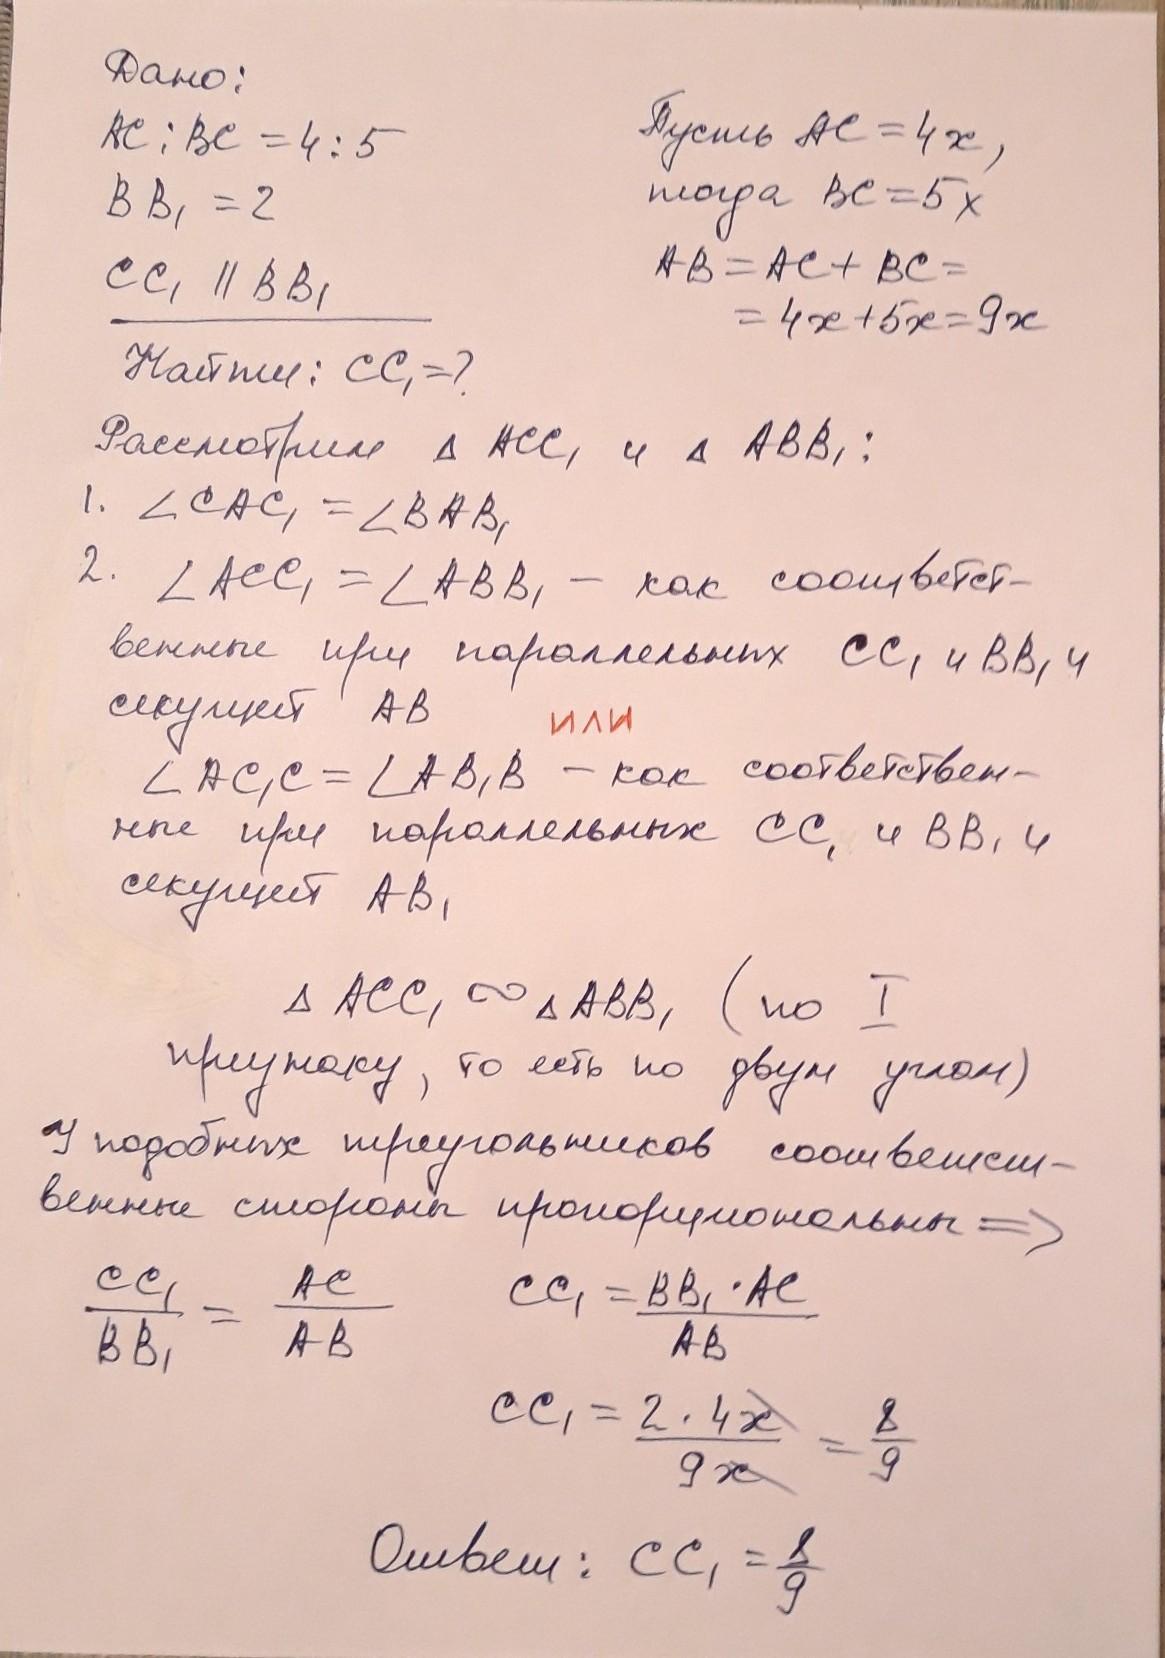 Дано:
AC : BC = 4 : 5
BB₁ = 2
CC₁ || BB₁
Найти: CC₁ = ?
Пусть AC = 4x,
тогда BC = 5x
AB = AC + BC =
= 4x + 5x = 9x
Рассмотрим △ ACC₁ и △ ABB₁:
1. ∠CAC₁ = ∠BAB₁
2. ∠ACC₁ = ∠ABB₁ – как соответст-
венные при параллельных CC₁ и BB₁ и
секущей AB или
∠AC₁C = ∠AB₁B – как соответствен-
ные при параллельных CC₁ и BB₁ и
секущей AB₁
△ ACC₁ ∾ △ ABB₁ (по I
признаку, то есть по двум углам)
У подобных треугольников соответст-
венные стороны пропорциональны =>
CC₁/BB₁ = AC/AB CC₁ = BB₁ · AC/AB
CC₁ = 2 · 4x/9x = 8/9
Ответ: CC₁ = 8/9